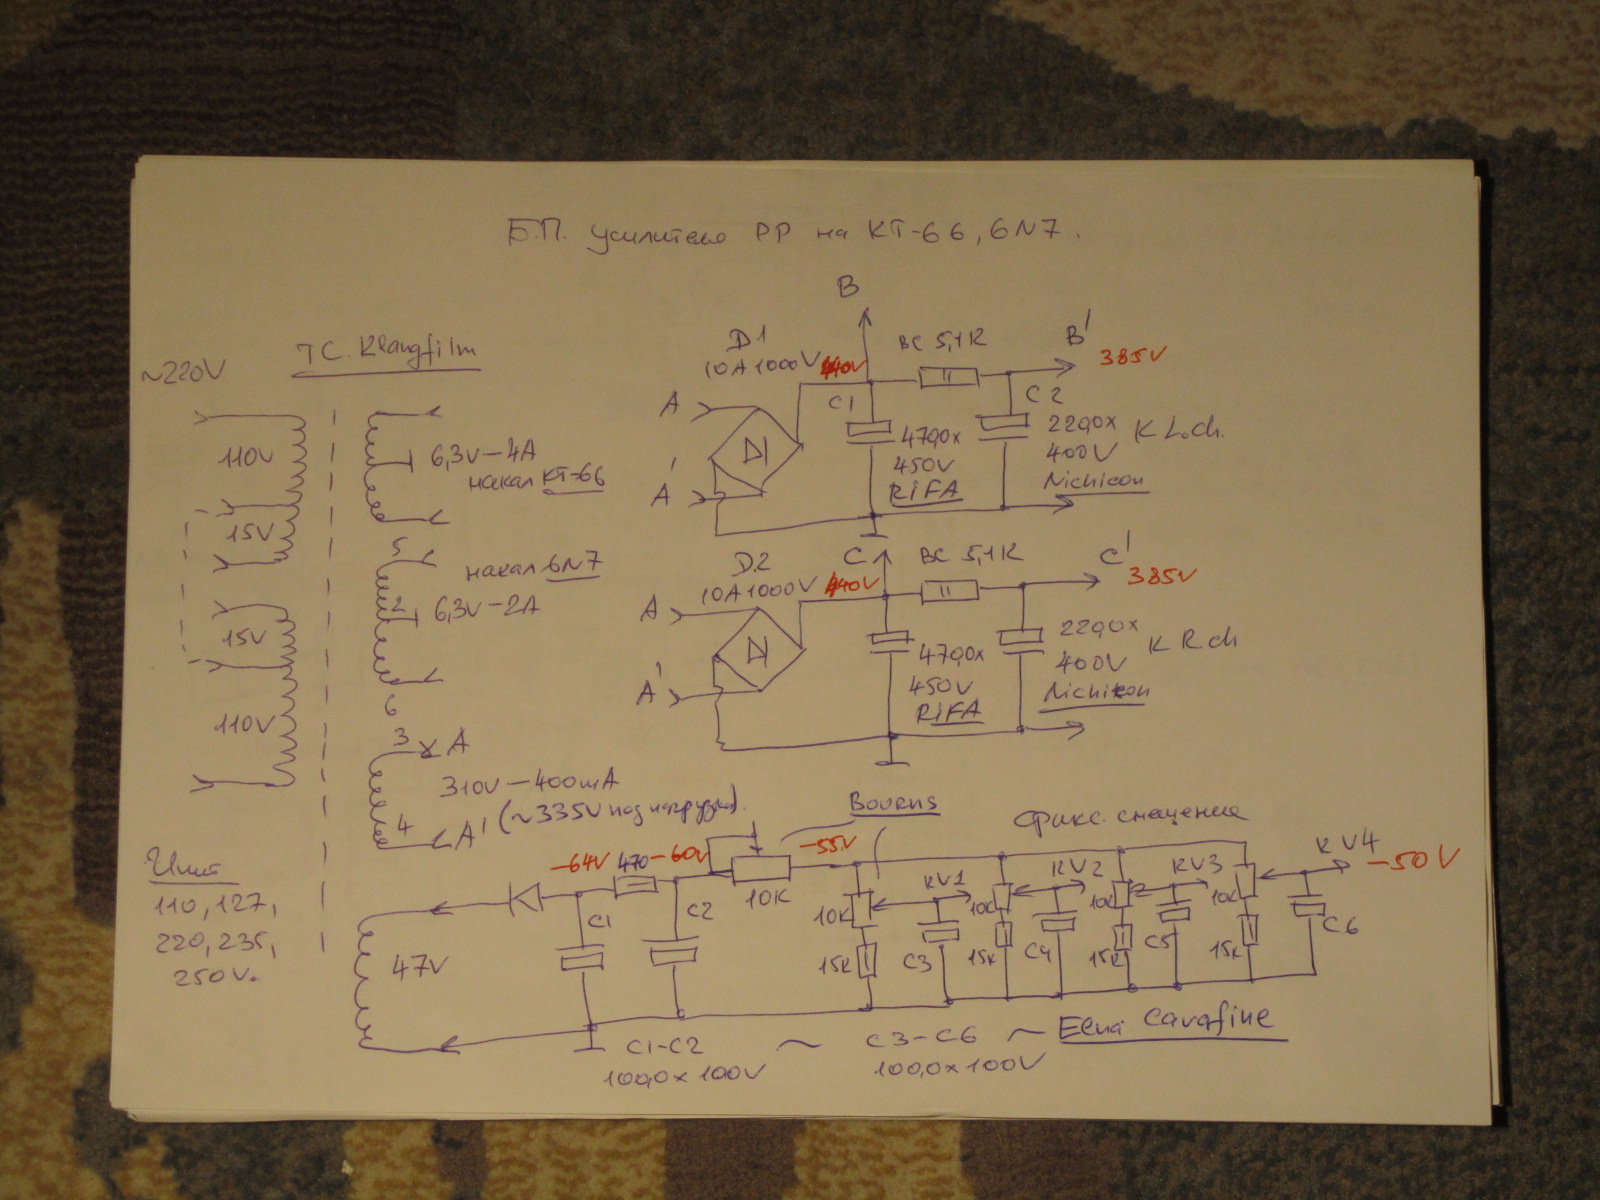 Б.П. усилителя РР на КТ-66, 6N7.
~220V
TC. Klangfilm
110V
15V
15V
110V
6,3V-4A
накал КТ-66
5
накал 6N7
2
6,3V-2A
6
3
A
310V-400mA
(~335V под нагрузкой).
4
A'
Unit
110, 127,
220, 235,
250V.
B
D1
10A 1000V
440V
BC 5,1K
B'
385V
A
A'
C1
470,0x
450V
RIFA
C2
220,0x
400V
Nichicon
K L.ch.
D2
10A 1000V
C
440V
BC 5,1K
C'
385V
A
A'
470,0x
450V
RIFA
220,0x
400V
Nichicon
K R.ch
Bourns
фикс. смещение
-64V
470
-60V
10K
-55V
47V
C1
C2
10K
15K
KV1
C3
10K
15K
KV2
C4
10K
15K
KV3
C5
10K
15K
KV4
-50V
C6
C1-C2 ~ C3-C6 ~ Elna Cerafine
100,0x100V 100,0x100V